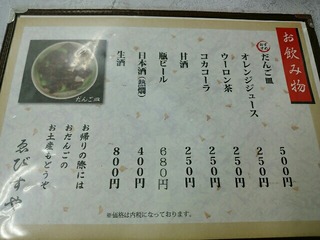 お飲み物
だんご皿 500円
オレンジジュース 250円
ウーロン茶 250円
コカコーラ 250円
甘酒 250円
瓶ビール 680円
日本酒(熱燗) 400円
生酒 800円
だんご皿
お帰りの際には
おだんごの
お土産もどうぞ
ゑびすや
※価格は内税になっております。